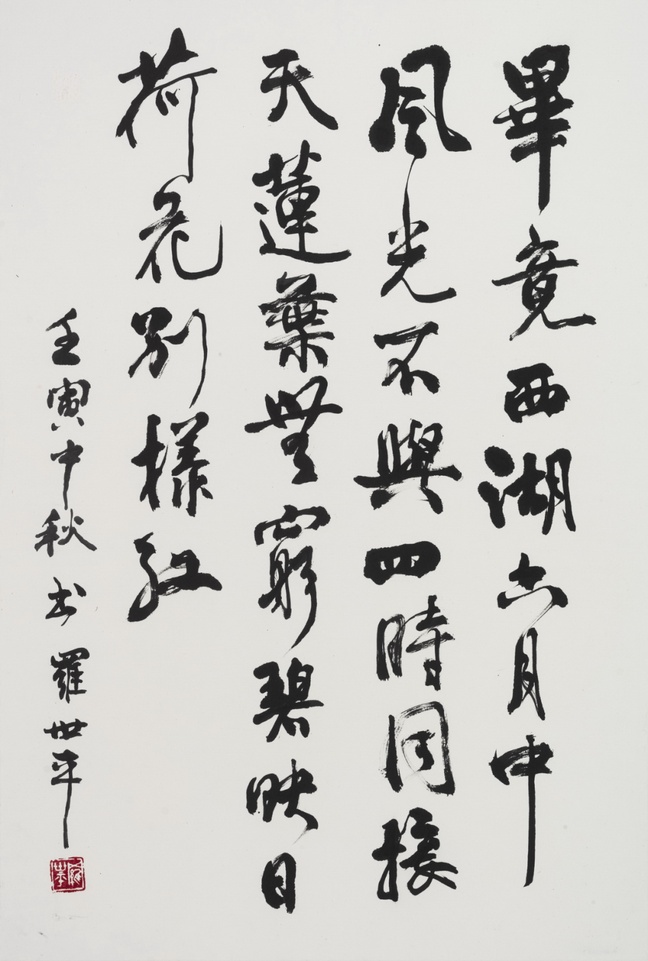 畢竟西湖六月中
風光不與四時同接
天蓮葉無窮碧映日
荷花別樣紅
壬寅中秋書羅世平